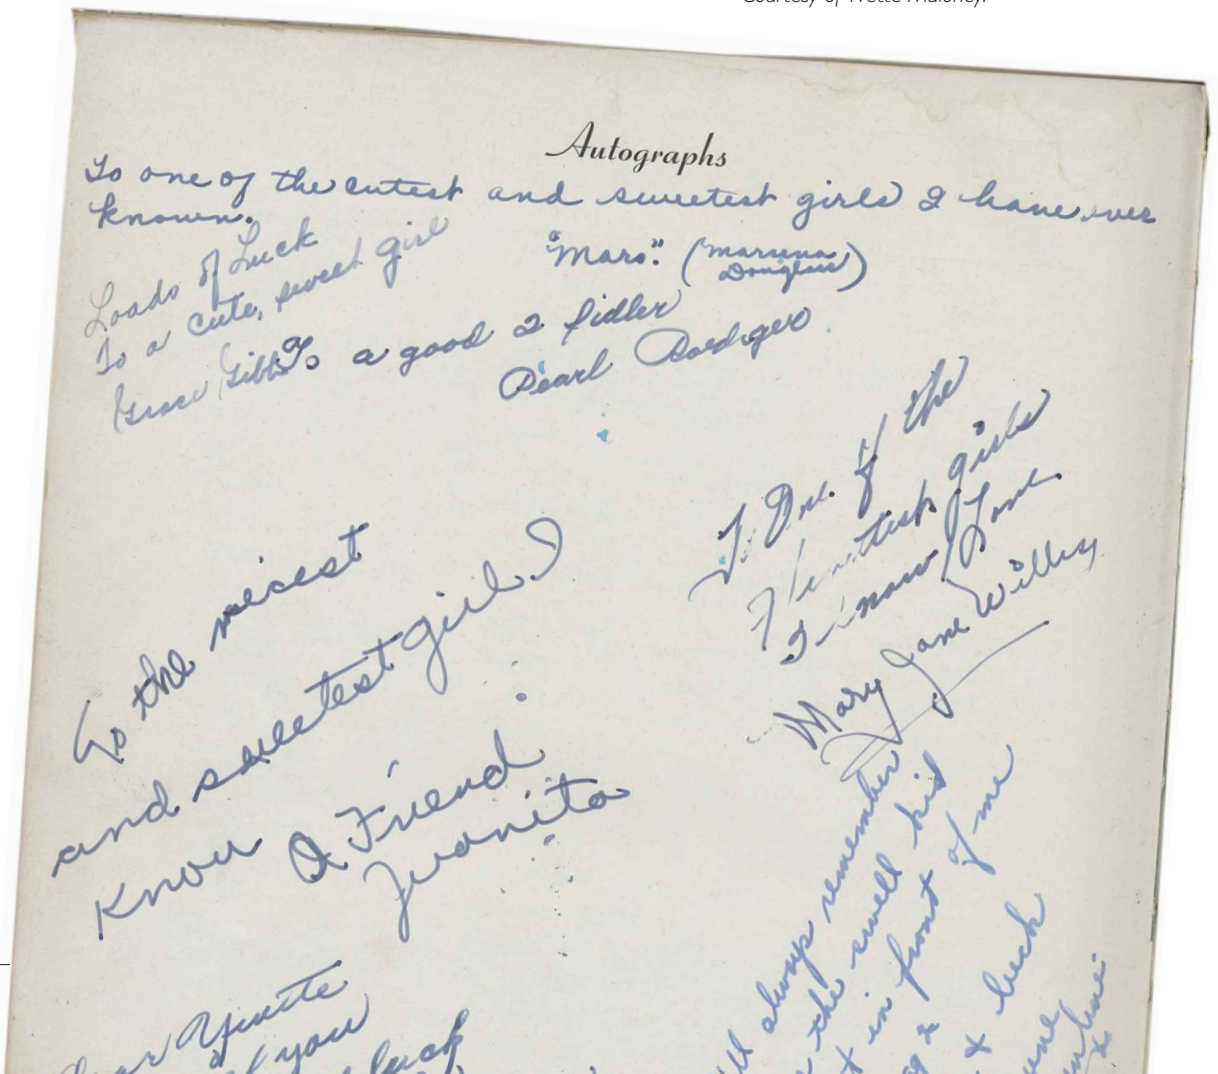 Courtesy of Yvette Maloney.
Autographs
To one of the cutest and sweetest girls I have ever
known.
"Mars". (
Douglass)
Loads of Luck
To a cute, sweet girl
Grace Gibbs
To a good 2 fidler
Pearl
To One of the
girls
I know Love.
Mary Jane Willey
To the nicest
and sweetest girl I
Know
A Friend
Juanita
always remember
the swell kid
in front of me
& luck
Dear Yvette
you
luck